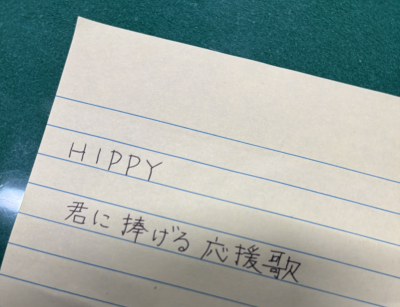 HIPPY
君に捧げる応援歌